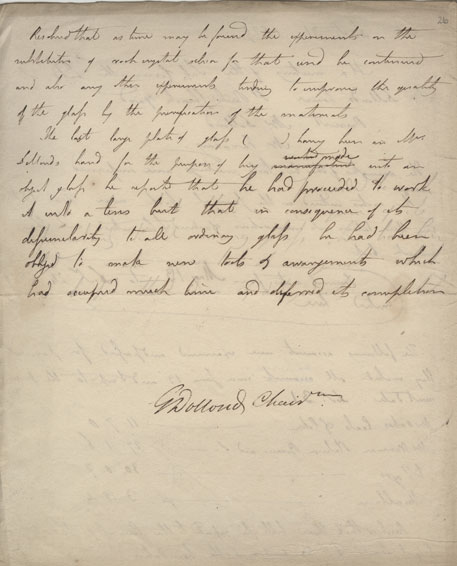 26
Resolved that as time may be found the experiments on the
substitution of rock crystal silica for that used be continued
and also any other experiments tending to improve the quality
of the glass by the purification of the materials
The last large plate of glass ( ) having been in Mr
Dollonds hand for the purpose of being manufactured made into an
object glass he reports that he had proceeded to work
it into a lens but that in consequence of its
dissimilarity to all ordinary glass he had been
obliged to make new tools & arrangements which
had occupied much time and deferred its completion
G Dollond Chairm